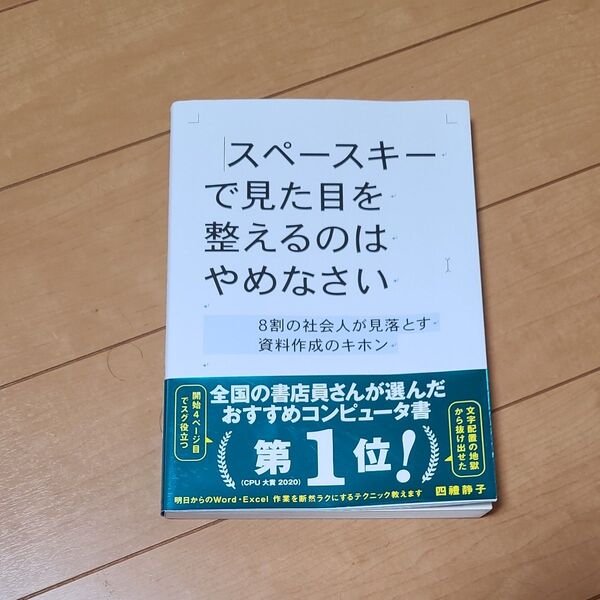 スペースキー
で見た目を
整えるのは
やめなさい
8割の社会人が見落とす
資料作成のキホン
全国の書店員さんが選んだ
おすすめコンピュータ書
開始4ページ目
でスグ役立つ
第1位!
(CPU大賞2020)
文字配置の地獄
から抜け出せた
明日からのWord・Excel 作業を断然ラクにするテクニック教えます
四禮静子